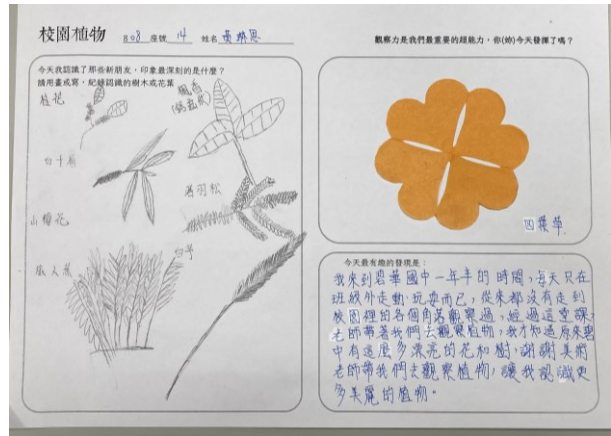 校園植物 班 08 座號 14 姓名
觀察力是我們最重要的超能力,你(妳)今天發揮了嗎?
今天我認識了那些新朋友,印象最深刻的是什麼?
請用畫或寫,紀錄認識的樹木或花葉
桂花
楓香
白千層
落羽松
山櫻花
白茅
旅人蕉
四葉草
今天最有趣的發現是:
我來到碧華國中一年半的時間,每天只在
班級外走動、玩耍而已,從來都沒有走到
校園裡的各個角落觀察過,經過這堂課,
老師帶著我們去觀察植物,我才知道原來碧
中有這麼多漂亮的花和樹,謝謝美術
老師帶我們去觀察植物,讓我認識更
多美麗的植物。